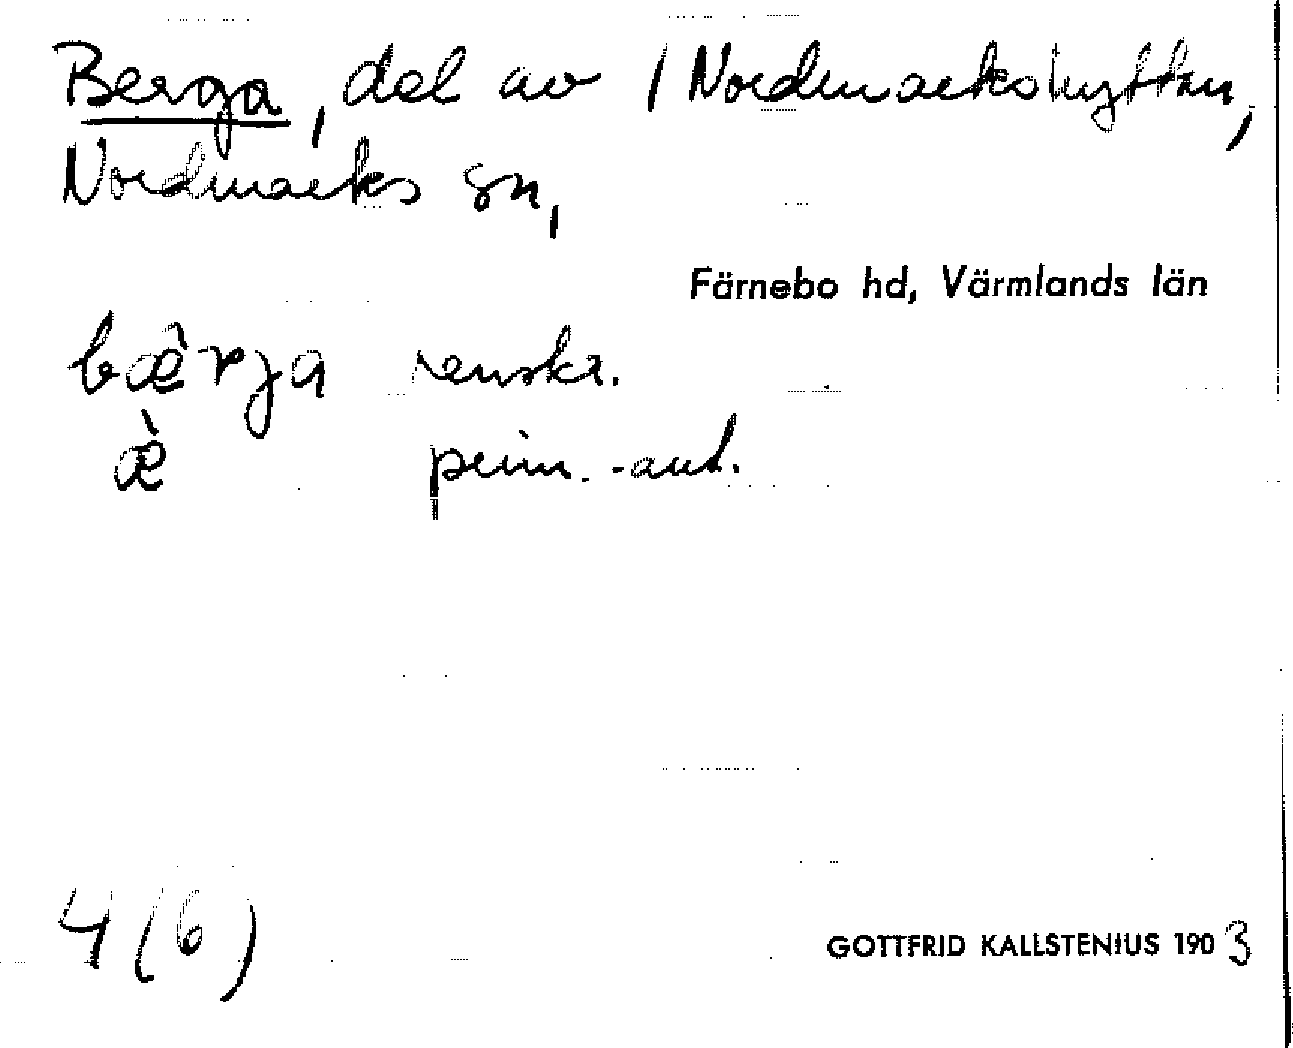 Berga, del av 1 Nordmarkshyttan,
Nordmarks sn,
Färnebo hd, Värmlands län
bæ̂rja renskr.
æ̀ prim.-ant.
4 (6)
GOTTFRID KALLSTENIUS 1903